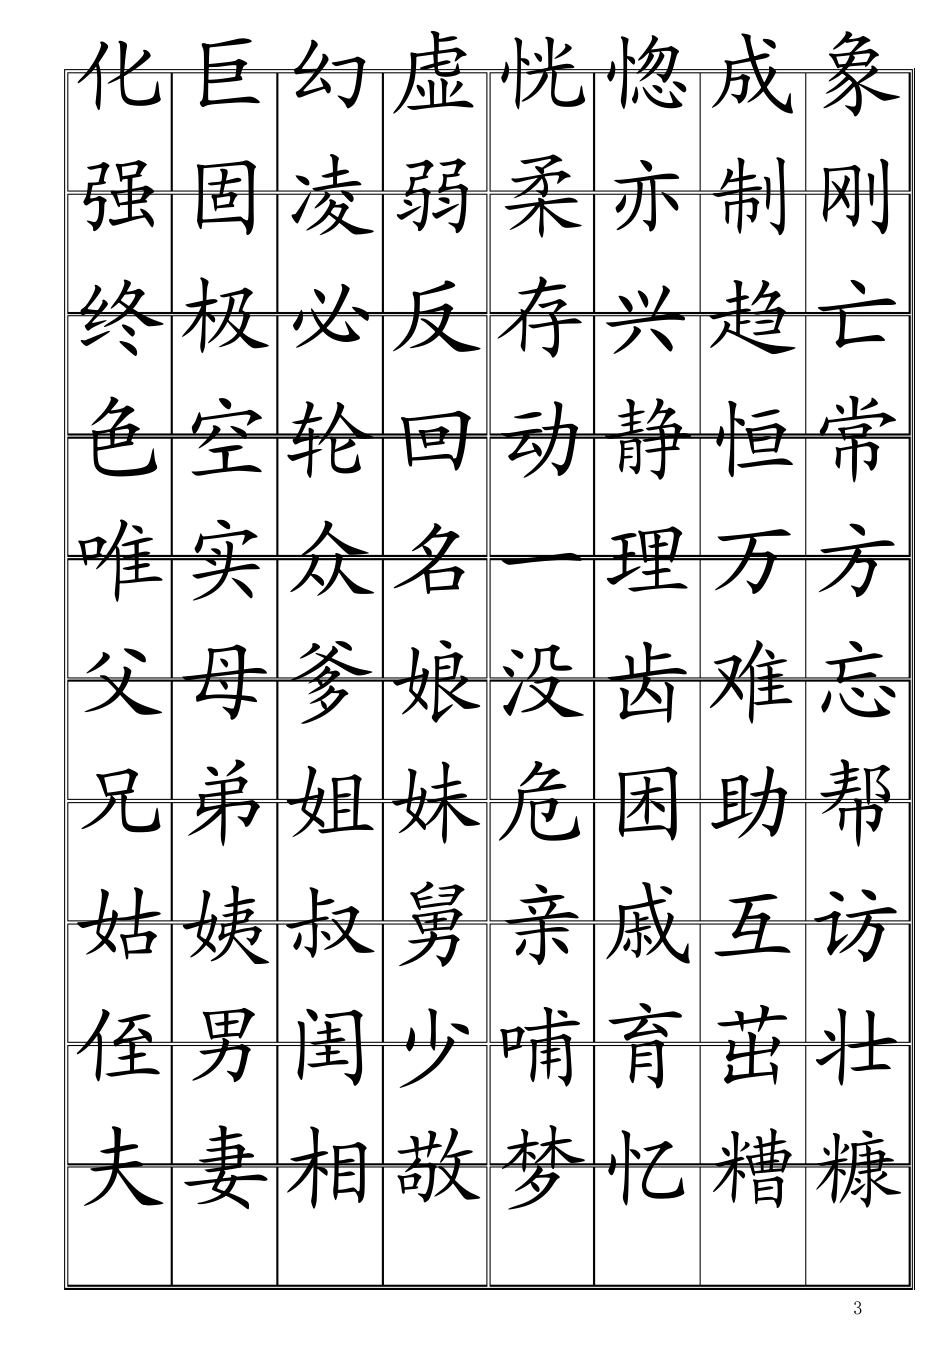 化巨幻虚恍惚成象
强固凌弱柔亦制刚
终极必反存兴趋亡
色空轮回动静恒常
唯实众名一理万方
父母爹娘没齿难忘
兄弟姐妹危困助帮
姑姨叔舅亲戚互访
侄男闺少哺育茁壮
夫妻相敬梦忆糟糠
3